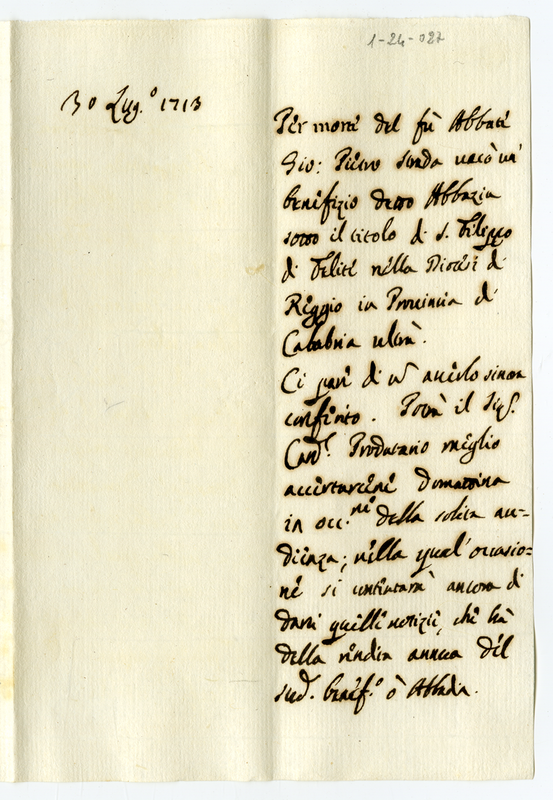 1-24-027
30 Lug.º 1713
Per morte del fù Abbate
Gio: Pietro vacò un
benefizio detto Abbazia
sotto il titolo di S. Filippo
di nella Diocesi di
Reggio in Provincia di
Calabria ultrà.
Ci pare di nõ averlo sinora
conferito. Potrà il Sigʳ.
Cardˡ. Prodatario meglio
accertarcene domattina
in occ.ⁿᵉ della solita au-
dienza; nella qual' occasio-
ne si contentarà ancora di
darci quelle notizie, che hà
della rendita annua del
sudº. benef.º ò Abbadia.